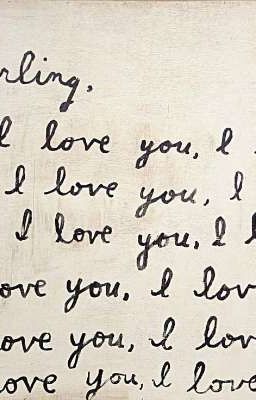 rling,
I love you, I
I love you, I
I love you, I l
ove you, I lov
ove you, I lov
ove you, I love